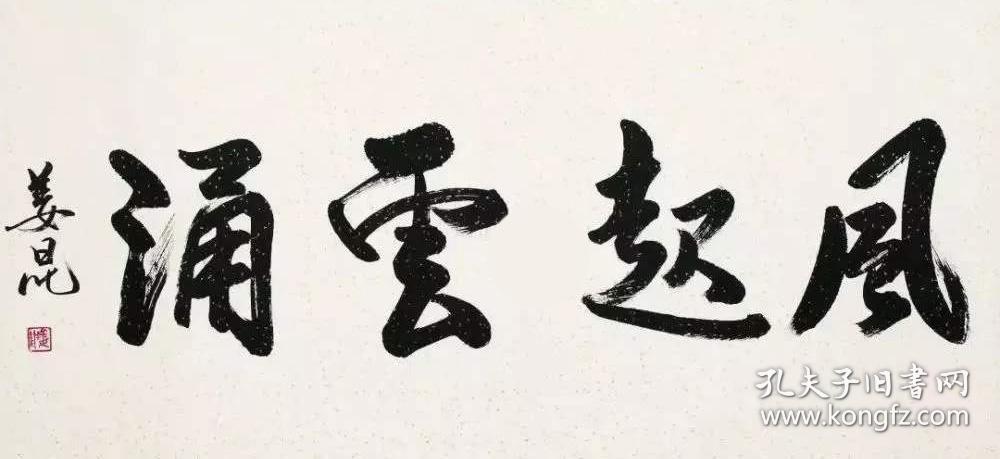 風起雲涌
姜昆
孔夫子旧書网
www.kongfz.com